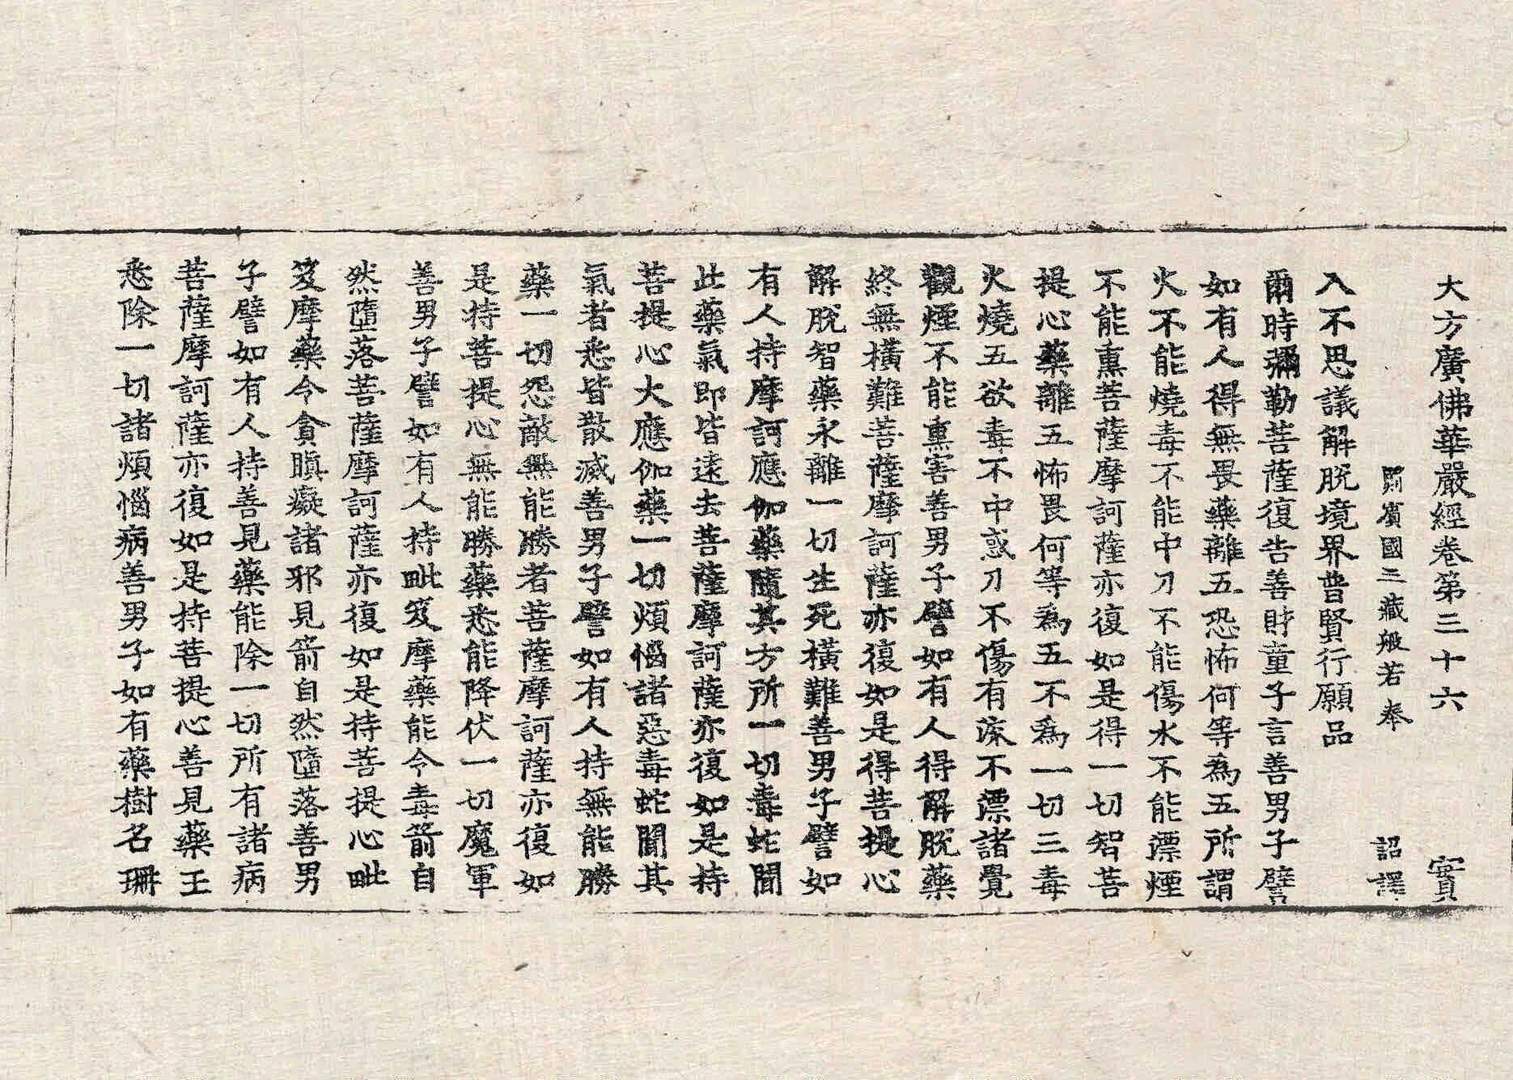 大方廣佛華嚴經卷第三十六 實
罽賓國三藏般若奉 詔譯
入不思議解脫境界普賢行願品
爾時彌勒菩薩復告善財童子言善男子譬
如有人得無畏藥離五恐怖何等為五所謂
火不能燒毒不能中刀不能傷水不能漂煙
不能熏菩薩摩訶薩亦復如是得一切智菩
提心藥離五怖畏何等為五不為一切三毒
火燒五欲毒不中惑刀不傷有流不漂諸覺
觀煙不能熏害善男子譬如有人得解脫藥
終無橫難菩薩摩訶薩亦復如是得菩提心
解脫智藥永離一切生死橫難善男子譬如
有人持摩訶應伽藥隨其方所一切毒蛇聞
此藥氣即皆遠去菩薩摩訶薩亦復如是持
菩提心大應伽藥一切煩惱諸惡毒蛇聞其
氣者悉皆散滅善男子譬如有人持無能勝
藥一切怨敵無能勝者菩薩摩訶薩亦復如
是持菩提心無能勝藥悉能降伏一切魔軍
善男子譬如有人持毗笈摩藥能令毒箭自
然墮落菩薩摩訶薩亦復如是持菩提心毗
笈摩藥令貪瞋癡諸邪見箭自然墮落善男
子譬如有人持善見藥能除一切所有諸病
菩薩摩訶薩亦復如是持菩提心善見藥王
悉除一切諸煩惱病善男子如有藥樹名珊